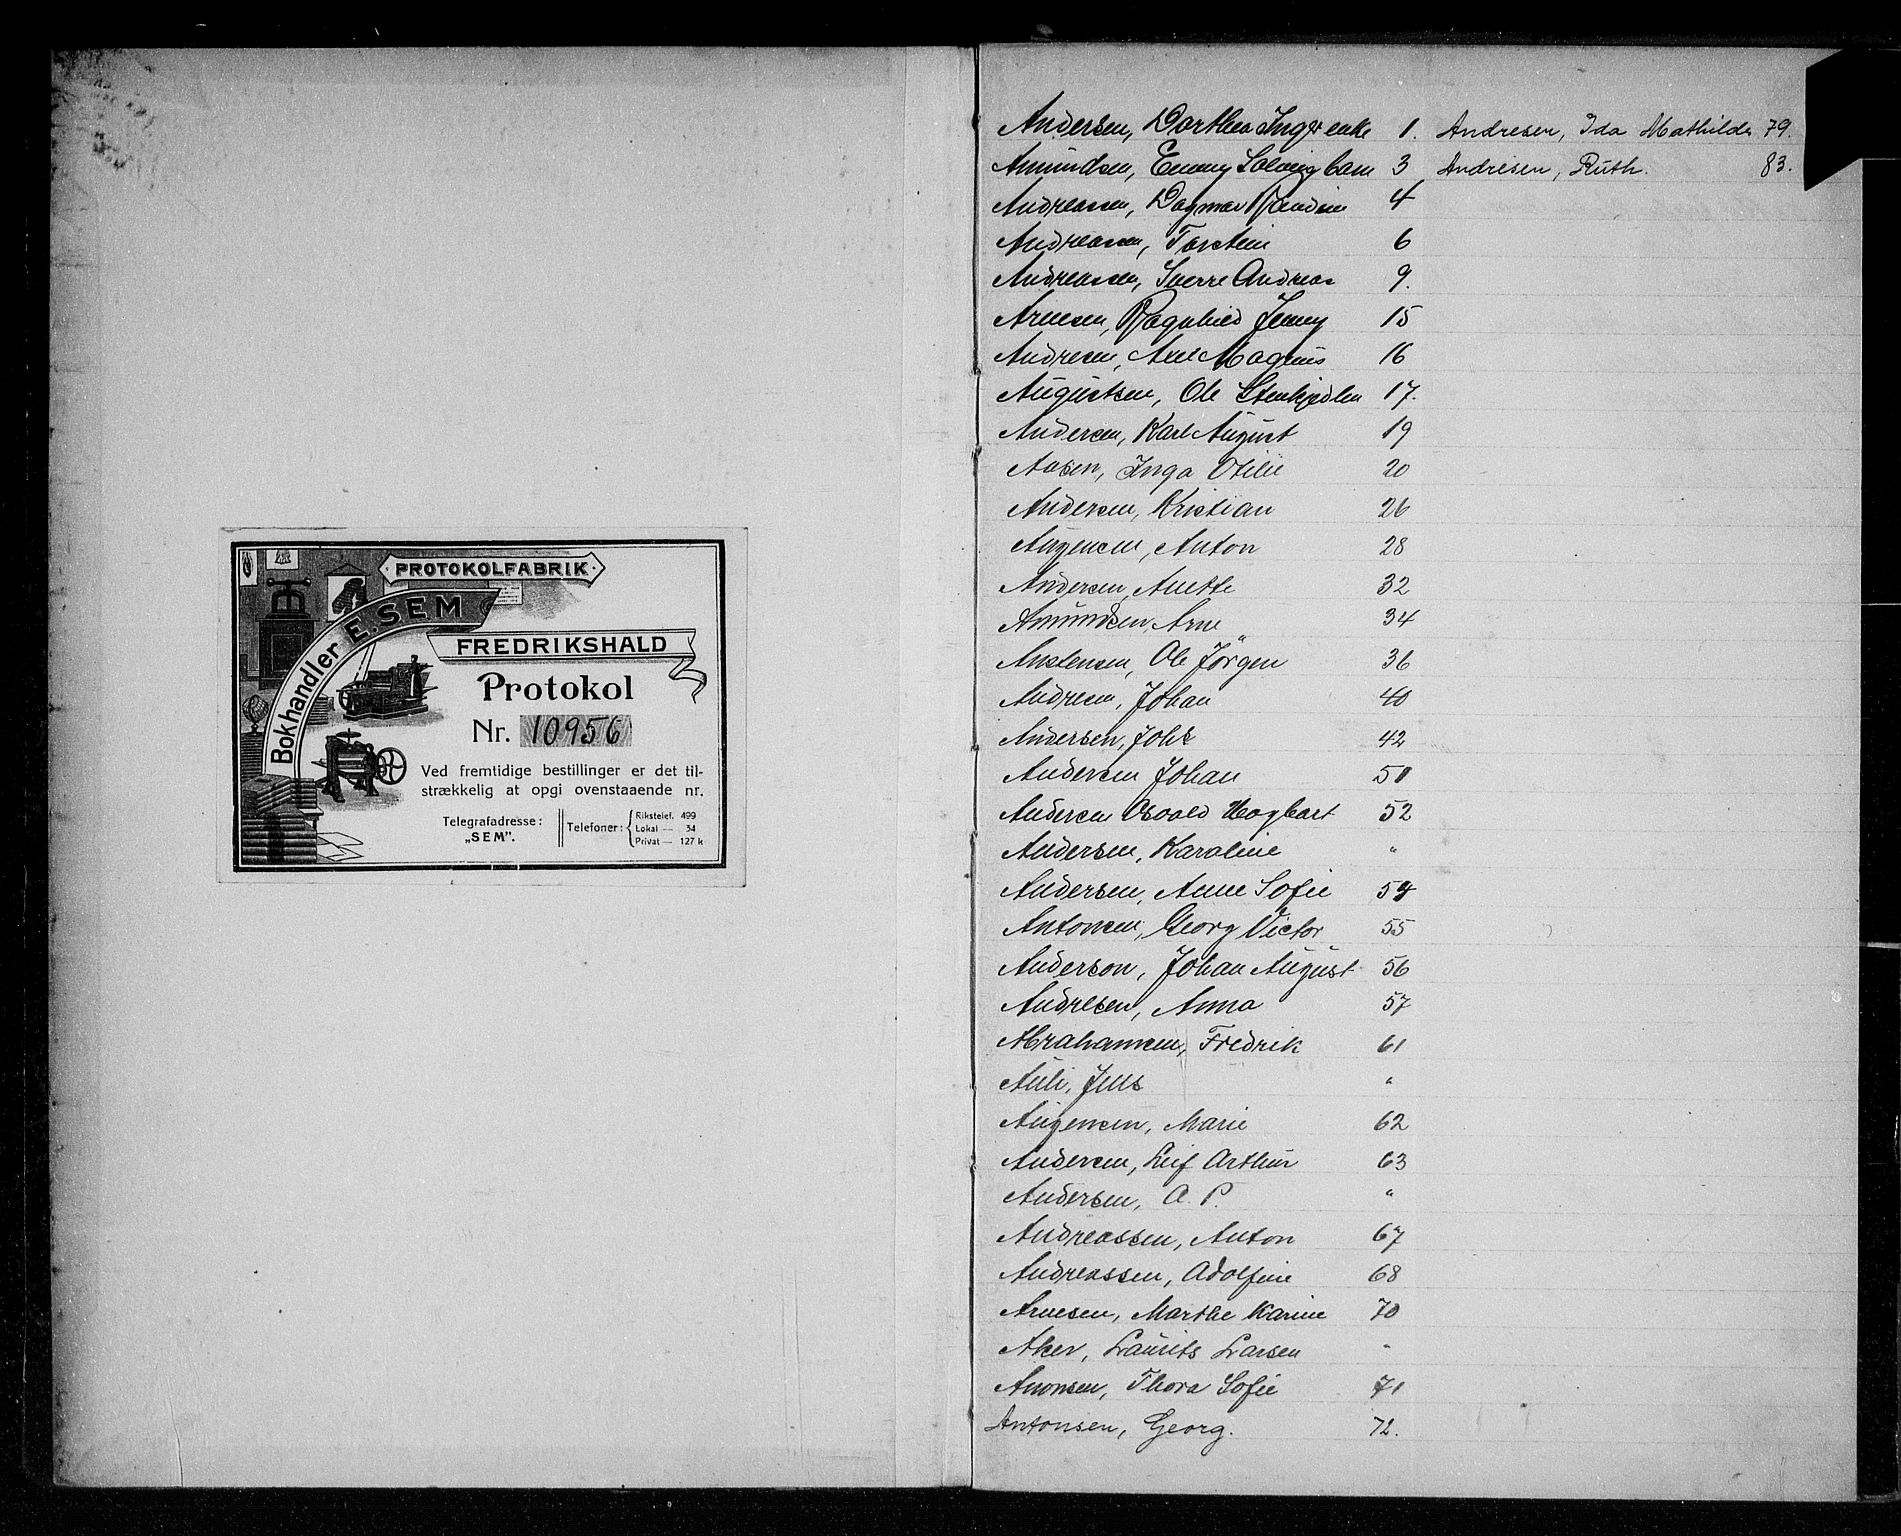 PROTOKOLFABRIK
Bokhandler E. SEM
FREDRIKSHALD
Protokol
Nr. 10956
Ved fremtidige bestillinger er det til-
strækkelig at opgi ovenstaaende nr.
Telegrafadresse:
„SEM”.
Telefoner:
Rikstelef. 499
Lokal — 34
Privat — 127 k
Andersen, Dorthea Inger enke 1.
Amundsen, Emmy Solveig 3
Andreassen, Dagmar 4
Andreassen, Torstein 6
Andreassen, Sverre Andreas 9.
Arnesen, Ragnhild Jenny 15
Andresen, Axel Magnus 16
Augustsen, Ole Stenkjedlen 17.
Andersen, Karl August 19
Aasen, Inga Otilie 20
Andersen, Kristian 26
Augensen, Anton 28
Andersen, Anette 32
Amundsen, Arne 34
Anstensen, Ole Jörgen 36
Andresen, Johan 40
Andersen, Johs 42
Andersen Johan 51
Andersen Osvald Hagbart 52
Andersen, Karoline "
Andersen, Anne Sofie 54
Antonsen, Georg Victor 55
Anderson, Johan August 56
Andresen, Anna 57
Abrahamsen, Fredrik 61
Auli, Jens "
Augensen, Marie 62
Andersen, Leif Arthur 63
Andersen, A. P. "
Andreassen, Anton 67
Andreassen, Adolfine 68
Arnesen, Marthe Karine 70
Aker, Laurits Larsen "
Aronsen, Thora Sofie 71
Antonsen, Georg. 72.
Andresen, Ida Mathilde 79.
Andresen, Ruth. 83.